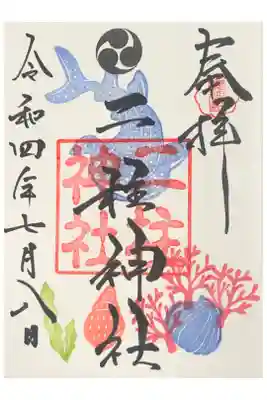 奉拝
三柱神社
三柱
神社
令和四年七月八日